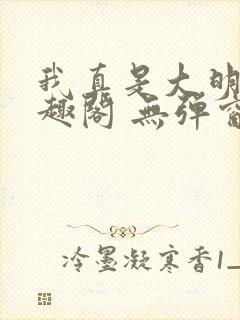 我真是大明
趣阁 無弹窗
冷墨凝寒香1_